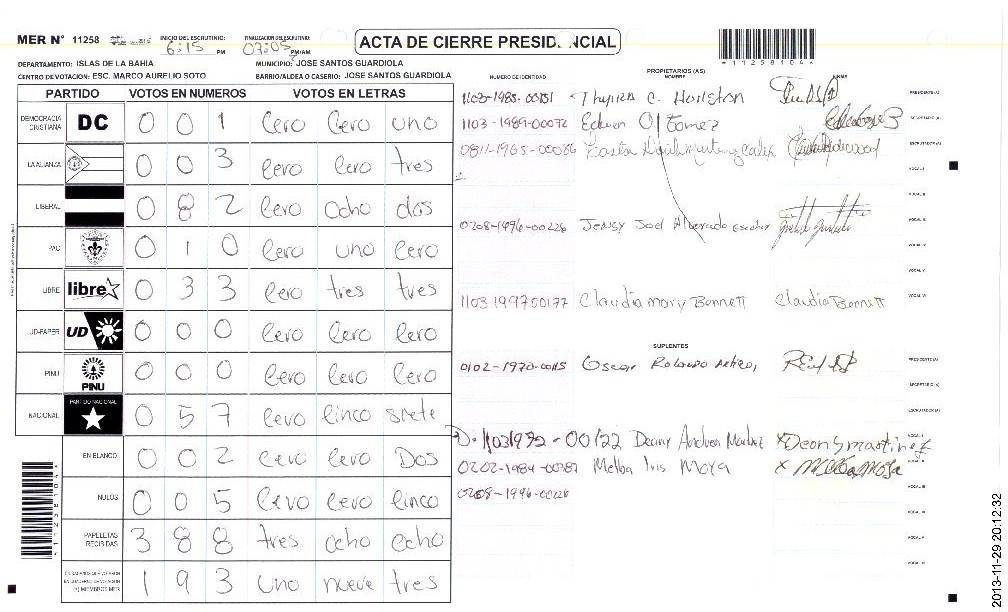 MER N° 11258 INICIO DEL ESCRUTINIO: 6:15 PM FINALIZACION DEL ESCRUTINIO: 07:05 PM/AM
ACTA DE CIERRE PRESIDENCIAL
DEPARTAMENTO: ISLAS DE LA BAHIA MUNICIPIO: JOSE SANTOS GUARDIOLA
CENTRO DE VOTACION: ESC. MARCO AURELIO SOTO BARRIO/ALDEA O CASERIO: JOSE SANTOS GUARDIOLA
PARTIDO VOTOS EN NUMEROS VOTOS EN LETRAS
DEMOCRACIA CRISTIANA DC 0 0 1 Cero Cero uno
LA ALIANZA 0 0 3 Cero Cero tres
LIBERAL 0 8 2 Cero ocho dos
PAC 0 1 0 Cero uno Cero
LIBRE libre 0 3 3 Cero tres tres
UD-FAPER UD 0 0 0 Cero Cero Cero
PINU PINU 0 0 0 Cero Cero Cero
NACIONAL PARTIDO NACIONAL 0 5 7 Cero Cinco siete
EN BLANCO 0 0 2 Cero Cero Dos
NULOS 0 0 5 Cero Cero Cinco
PAPELETAS RECIBIDAS 3 8 8 tres ocho ocho
(+) MIEMBROS MER 1 9 3 Uno nueve tres
NUMERO DE IDENTIDAD PROPIETARIOS (AS) NOMBRE FIRMA
1103-1985-00151 C. Houston PRESIDENTE(A)
1103-1989-00072 Gomez SECRETARIO(A)
0811-1965-00086 ESCRUTADOR(A)
VOCAL I
VOCAL II
0208-1996-00226 Jensy Joel Alvarado VOCAL III
VOCAL IV
VOCAL V
1103 199700177 Claudia Mary Bennett Claudia Bennett VOCAL VI
SUPLENTES
0102-1970-00115 Oscar Rolando PRESIDENTE(A)
SECRETARIO(A)
ESCRUTADOR(A)
11031972-00122 Deany Andrea Martinez Deany martinez VOCAL I
0202-1984-00387 Melba Iris Moya Melba Moya VOCAL II
0208-1996-00226 VOCAL III
VOCAL IV
VOCAL V
VOCAL VI
2013-11-29 20:12:32